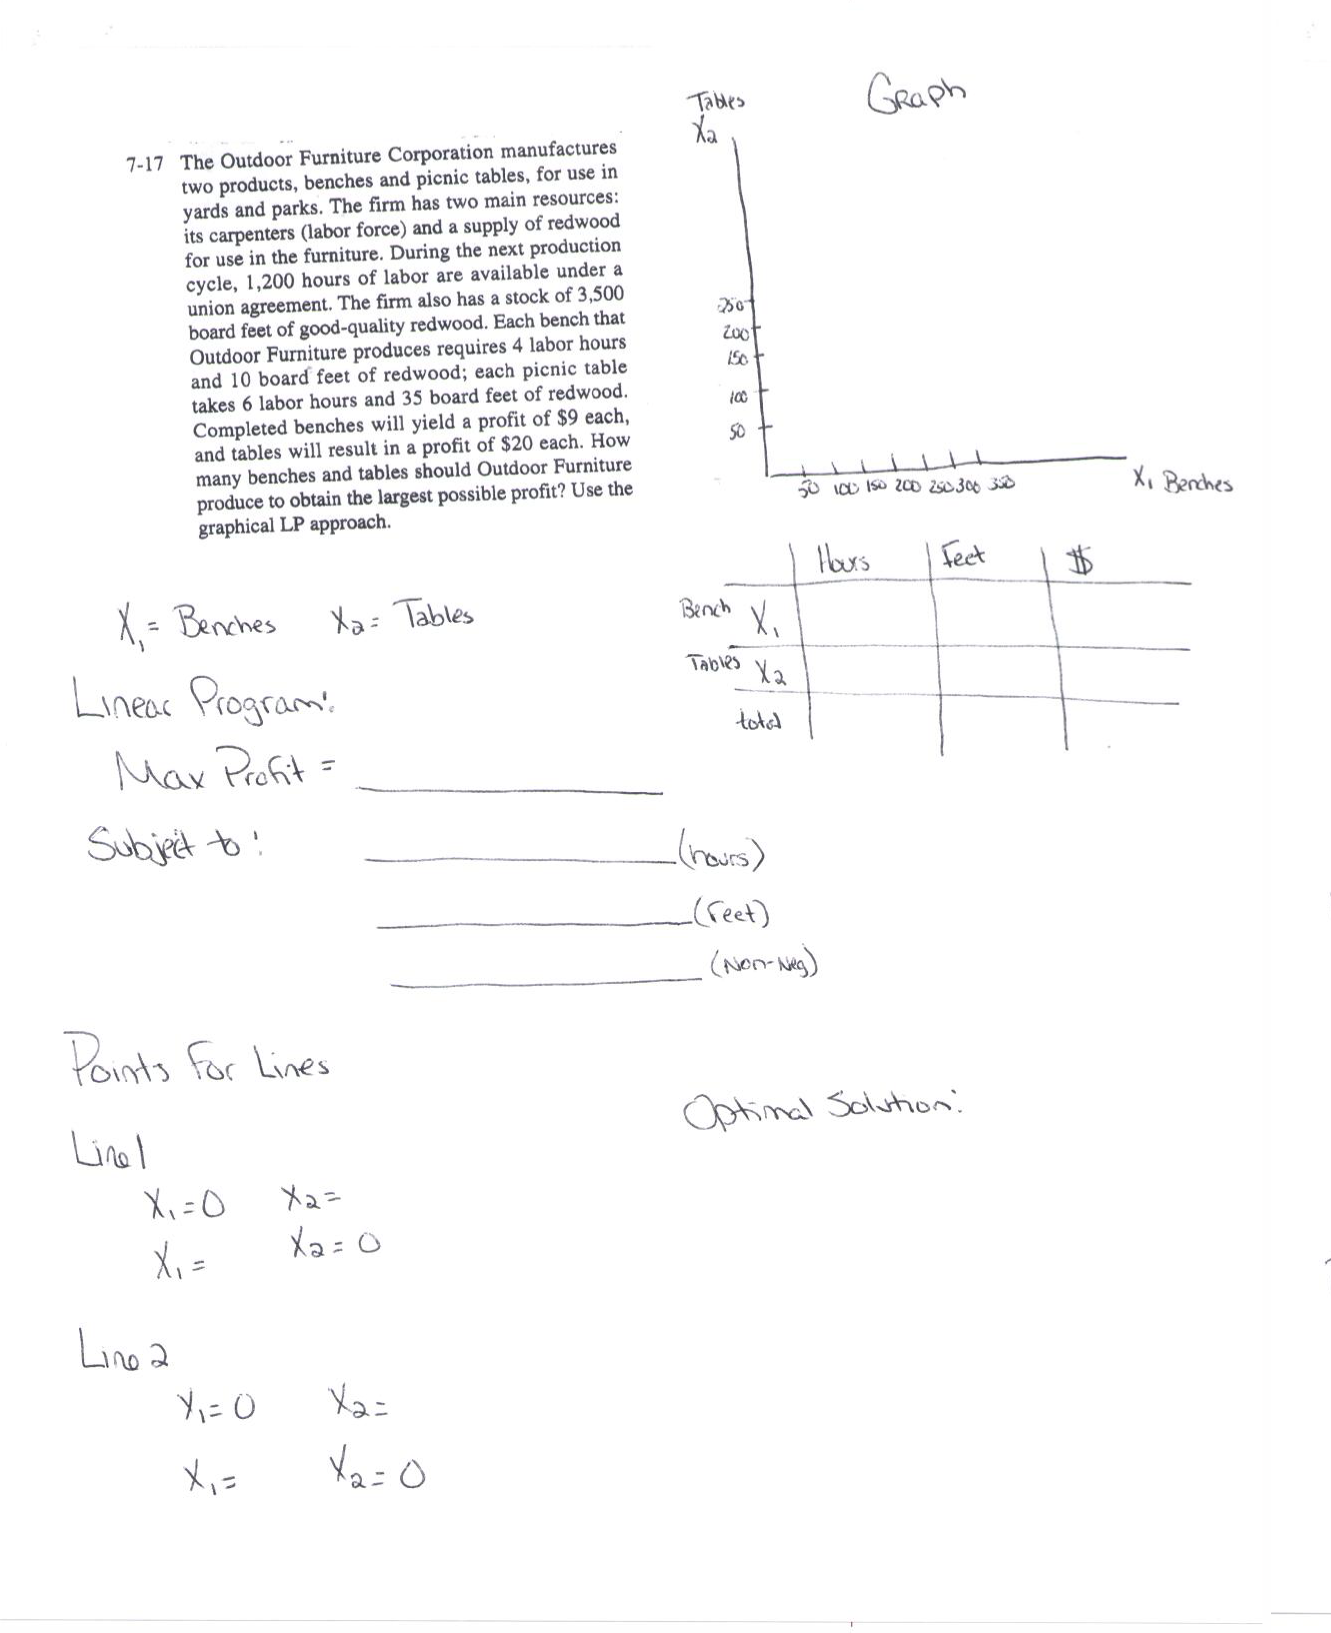 Graph
Tables
X2
7-17 The Outdoor Furniture Corporation manufactures
two products, benches and picnic tables, for use in
yards and parks. The firm has two main resources:
its carpenters (labor force) and a supply of redwood
for use in the furniture. During the next production
cycle, 1,200 hours of labor are available under a
union agreement. The firm also has a stock of 3,500
board feet of good-quality redwood. Each bench that
Outdoor Furniture produces requires 4 labor hours
and 10 board feet of redwood; each picnic table
takes 6 labor hours and 35 board feet of redwood.
Completed benches will yield a profit of $9 each,
and tables will result in a profit of $20 each. How
many benches and tables should Outdoor Furniture
produce to obtain the largest possible profit? Use the
graphical LP approach.
250
200
150
100
50
50 100 150 200 250 300 350
X1 Benches
Hours Feet $
Bench X1
Tables X2
total
X1 = Benches X2 = Tables
Linear Program:
Max Profit =
Subject to:
(hours)
(feet)
(Non-Neg)
Points For Lines
Line 1
X1 = 0 X2 =
X1 = X2 = 0
Line 2
X1 = 0 X2 =
X1 = X2 = 0
Optimal Solution: